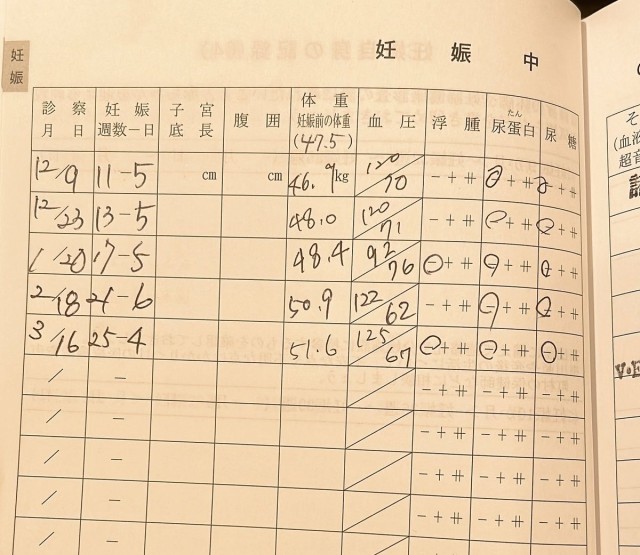 妊娠
妊娠中
診察月日 妊娠週数－日 子宮底長 腹囲 体重 妊娠前の体重 (47.5) 血圧 浮腫 尿蛋白 たん 尿糖
12/9 11-5 cm cm 46.9kg 120/70 － ＋ ⧺ － ＋ ⧺ － ＋ ⧺
12/23 13-5 48.0 120/71 － ＋ ⧺ － ＋ ⧺ － ＋ ⧺
1/20 17-5 48.4 92/76 － ＋ ⧺ － ＋ ⧺ － ＋ ⧺
2/18 21-6 50.9 122/62 － ＋ ⧺ － ＋ ⧺ － ＋ ⧺
3/16 25-4 51.6 125/67 － ＋ ⧺ － ＋ ⧺ － ＋ ⧺
／ － ／ － ＋ ⧺ － ＋ ⧺ － ＋ ⧺
／ － ／ － ＋ ⧺ － ＋ ⧺ － ＋ ⧺
／ － ／ － ＋ ⧺ － ＋ ⧺ － ＋ ⧺
／ － ／ － ＋ ⧺ － ＋ ⧺ － ＋ ⧺
／ － ／ － ＋ ⧺ － ＋ ⧺ － ＋ ⧺
そ
(血液
超音